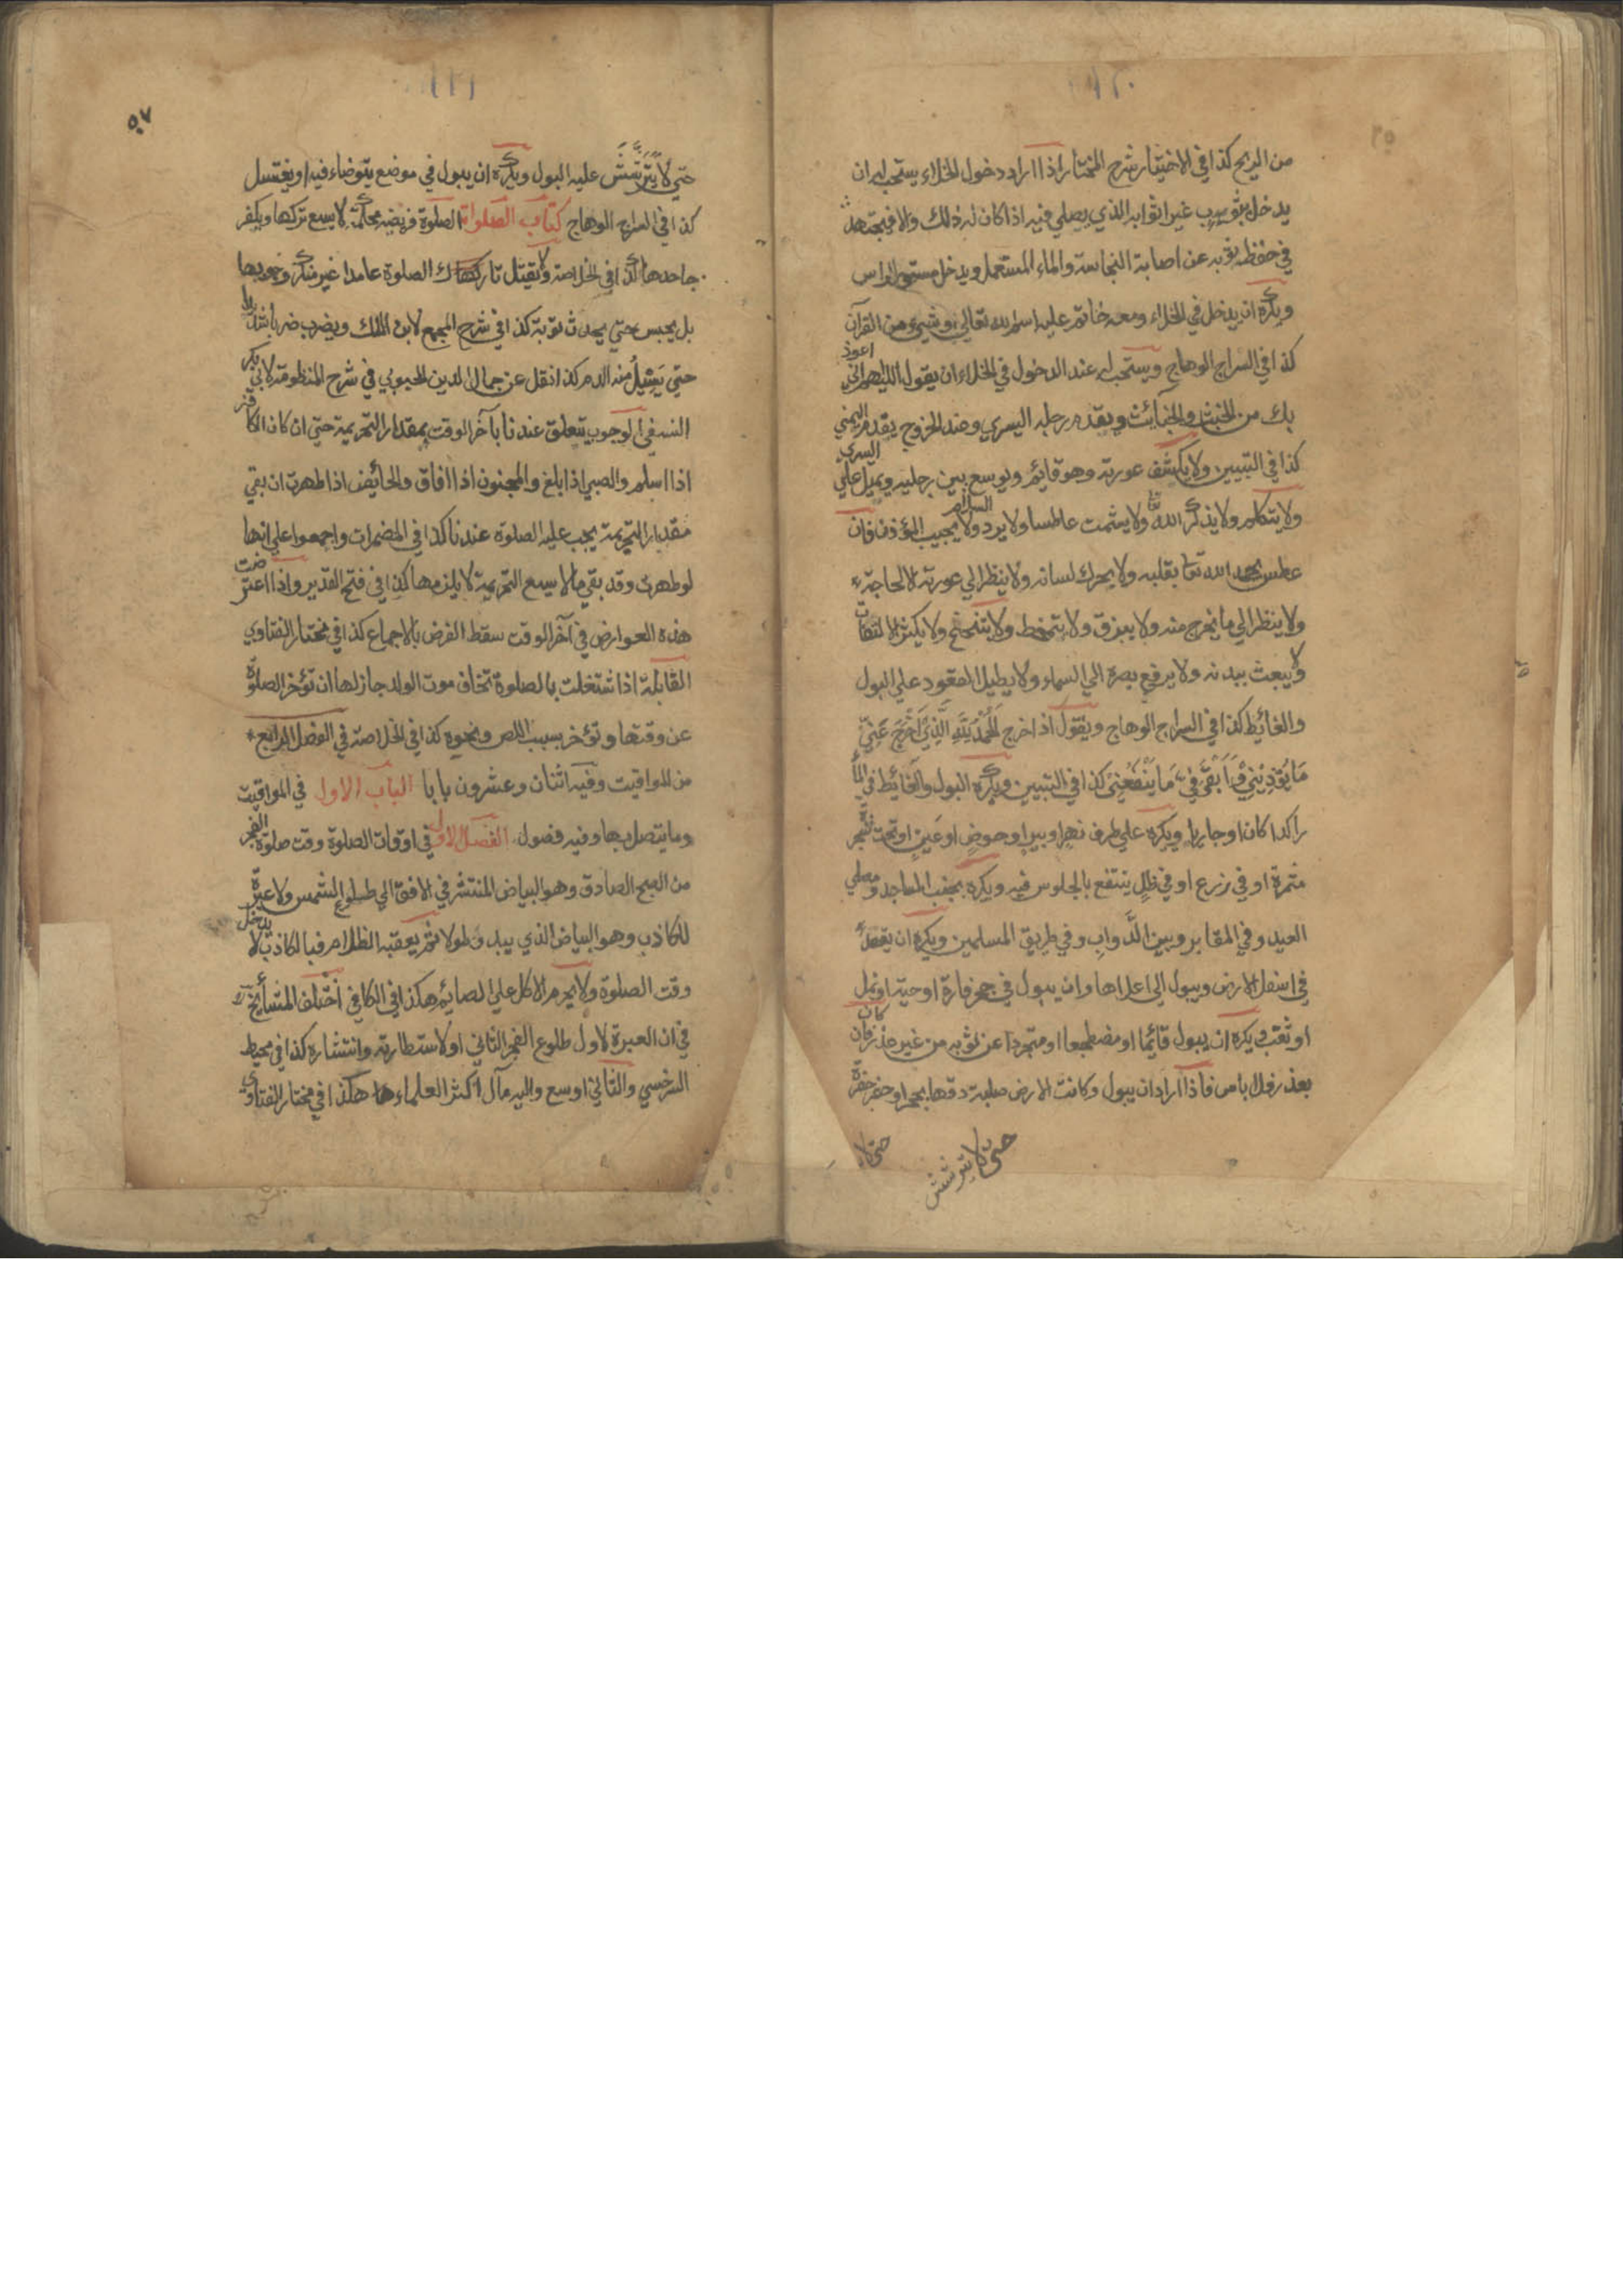 من الريح كذا في الاختيار شرح المختار اذا اراد دخول الخلاء يستحب له ان
يدخل بثوب غير اثوابه الذي يصلي فيه اذا كان له ذلك والا فيجتهد
في حفظ ثوبه عن اصابة النجاسة والماء المستعمل ويدخل مستور الراس
ويكره ان يدخل في الخلاء ومعه خاتم عليه اسم الله تعالى او شيء من القرآن
كذا في السراج الوهاج ويستحب له عند الدخول في الخلاء ان يقول اللهم اني اعوذ
بك من الخبث والخبائث ويقدم رجله اليسري وعند الخروج يقدم اليمني
كذا في التبيين ولا يكشف عورته وهو قايم ويوسع بين رجليه ويميل علي اليسري
ولا يتكلم ولا يذكر الله تعا ولا يشمت عاطسا ولا يرد السلام ولا يجيب المؤذن فان
عطس يحمد الله تعا بقلبه ولا يحرك لسانه ولا ينظر الي عورته الا لحاجة
ولا ينظر الي ما يخرج منه ولا يبزق ولا يتمخط ولا يتنحنح ولا يكثر الالتفات
ولا يبعث ببدنه ولا يرفع بصره الي السماء ولا يطيل القعود علي البول
والغائيط كذا في السراج الوهاج ويقول اذا خرج اَلْحَمْدُ لِلّٰهِ الَّذِيْ اَخْرَجَ عَنِّيْ
مَا يُؤْذِيْنِيْ وَاَبْقَى فِيَّ مَا يَنْفَعُنِيْ كذا في التبيين ويكره البول والغائيط في الماء
راكدا كان او جاريا ويكره علي طرف نهر او بير او حوض او عين او تحت شجرة
مثمرة او في زرع او في ظل ينتفع بالجلوس فيه ويكره بجنب المساجد ومصلي
العيد وفي المقابر وبين الدَّوابِ وفي طريق المسلمين ويكره ان يقعد
في اسفل الارض ويبول الي اعلاها وان يبول في جحر فارة او حية او نمل
او ثقب ويكره ان يبول قائما او مضطجعا او متجردا عن ثوبه من غير عذر فان كان
بعذر فلا باس فاذا اراد ان يبول وكانت الارض صلبة دقها بحجر او حفر حفرة
حتى لا
حتى لا يترشش
٥٧
حتي لا يَتَرَشَّشَ عليه البول ويكره ان يبول في موضع يتوضاء فيه او يغتسل
كذا في السراج الوهاج كتاب الصلوات الصلوة فريضة محكمة لا يسع تركها ويكفر
جاحدها كذا في الخلاصة ولا يقتل تارك الصلوة عامدا غير منكر وجوبها
بل يحبس حتي يحدث توبة كذا في شرح المجمع لابن الملك ويضرب ضربا شديدا
حتي يَسِيْلُ منه الدم كذا نقل عن جمال الدين المحبوبي في شرح المنظومة لابي بكر
النسفي الوجوب يتعلق عندنا بآخر الوقت بمقدار التحريمة حتي ان كان الكافر
اذا اسلم والصبي اذا بلغ والمجنون اذا افاق والحائيض اذا طهرت ان بقي
مقدار التحريمة يجب عليه الصلوة عندنا كذا في المضمرات واجمعوا علي انها
لو طهرت وقد بقي ما لا يسع التحريمة لا يلزمها كذا في فتح القدير واذا اعترضت
هذه العوارض في آخر الوقت سقط الفرض بالاجماع كذا في مختار الفتاوي
القابلة اذا شتغلت بالصلوة تخاف موت الولد جاز لها ان تؤخر الصلوة
عن وقتها وتؤخر بسبب اللص ونحوه كذا في الخلاصة في الفصل الرابع *
من المواقيت وفيه اثنان وعشرون بابا الباب الاول في المواقيت
وما يتصل بها وفيه فصول الفصل الاول في اوقات الصلوة وقت صلوة الفجر
من الصبح الصادق وهو البياض المنتشر في الافق الي طلوع الشمس ولا عبرة
للكاذب وهو البياض الذي يبدو طولا ثم يعقبه الظلام فبا لكاذب لا يدخل
وقت الصلوة ولا يحرم الاكل علي الصائم هكذا في الكافي اختلف المشايخ
في ان العبرة لاول طلوع الفجر الثاني او لاستطارته وانتشاره كذا في محيط
السرخسي والثاني اوسع واليه مآل اكثر العلماء هكذا في مختار الفتاوي